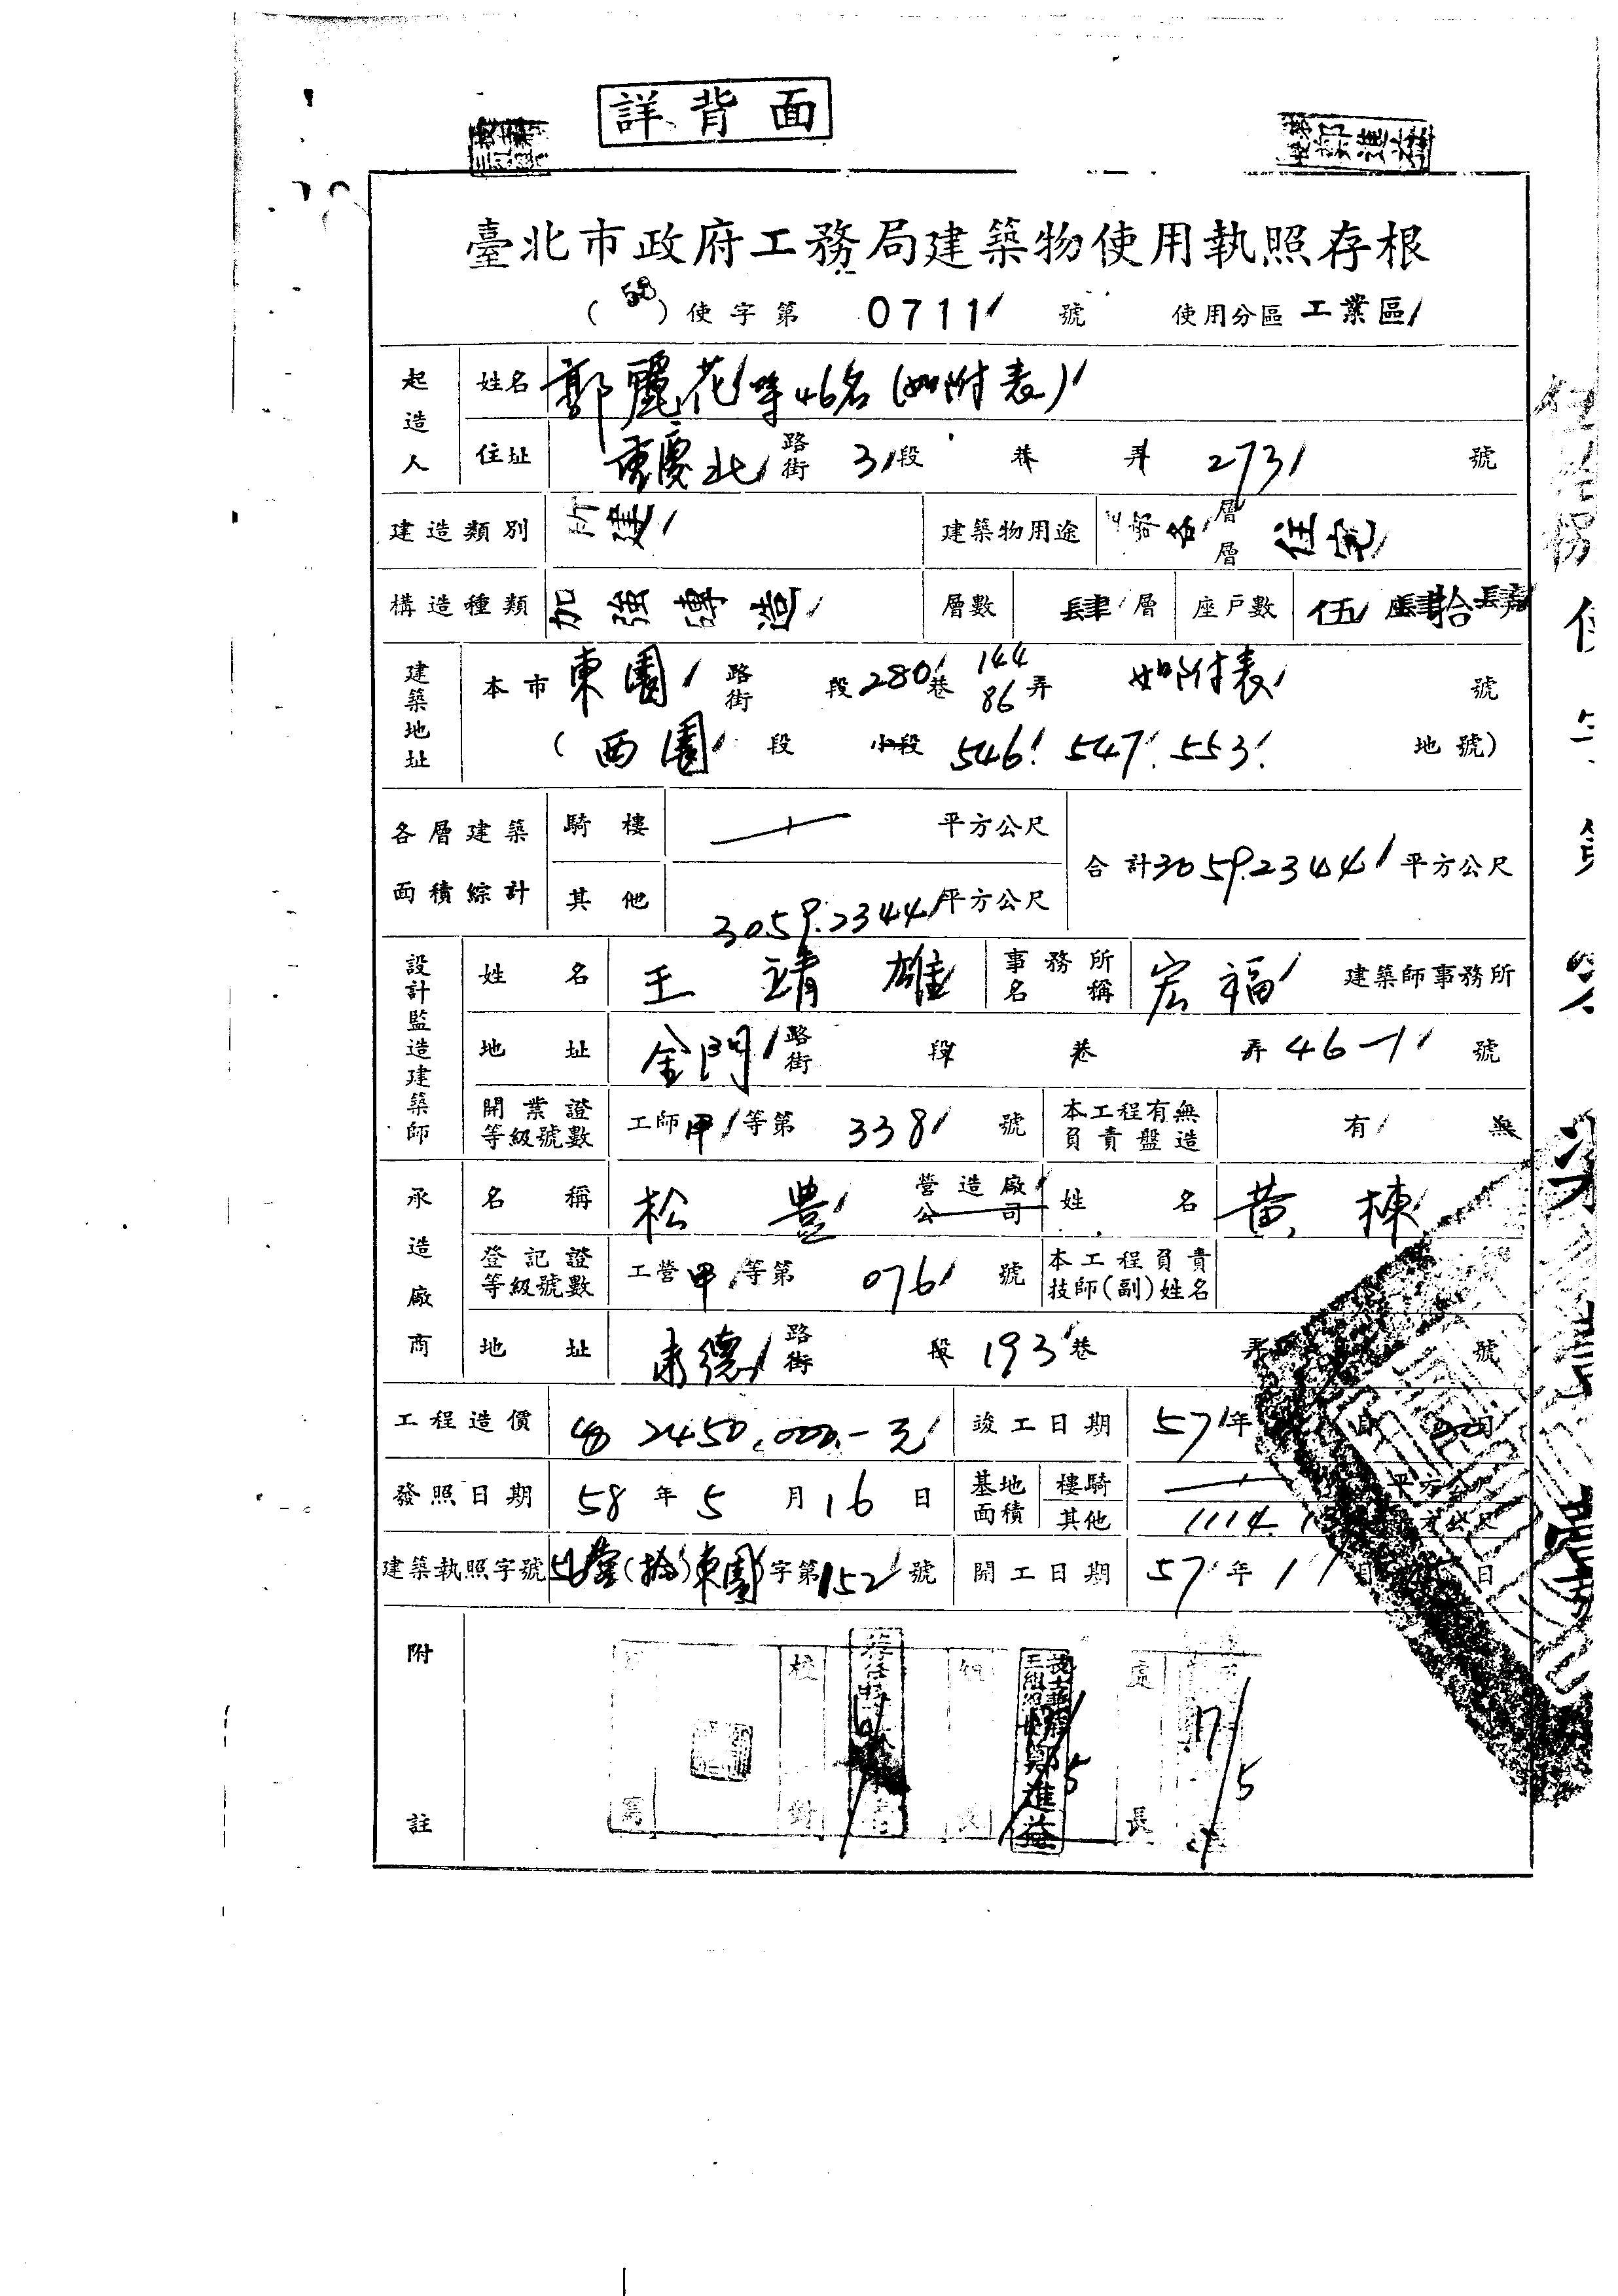 詳背面
鄭進益
臺北市政府工務局建築物使用執照存根
(58)使字第 0711 號 使用分區 工業區
起造人 姓名 鄭麗花等46名(如附表)
住址 重慶北 路街 3段 巷 弄 273 號
建造類別 新建 建築物用途 各層 層 住宅
構造種類 加強磚造 層數 肆層 座戶數 伍座肆拾肆戶
建築地址 本市 東園 路街 段 280巷 144 86 弄 如附表 號
(西園 段 小段 546. 547. 553. 地號)
各層建築面積綜計 騎樓 平方公尺 合計3059.2344平方公尺
其他 3059.2344平方公尺
設計監造建築師 姓名 王靖雄 事務所名稱 宏福 建築師事務所
地址 金門 路街 段 巷 弄 46-1 號
開業證等級號數 工師甲等第 338 號 本工程有無負責盤造 有 無
承造廠商 名稱 松豊 營造廠公司 姓名 黃棟
登記證等級號數 工營甲等第 076 號 本工程負責技師(副)姓名
地址 德 路街 段 193巷 弄 號
工程造價 2450,000.-元 竣工日期 57年 月 日
發照日期 58年5月16日 基地面積 樓騎 平方公尺
其他 1114. 平方公尺
建築執照字號 東園字第152號 開工日期 57年1月 日
附註 校對 處長
鄭進益
17/5